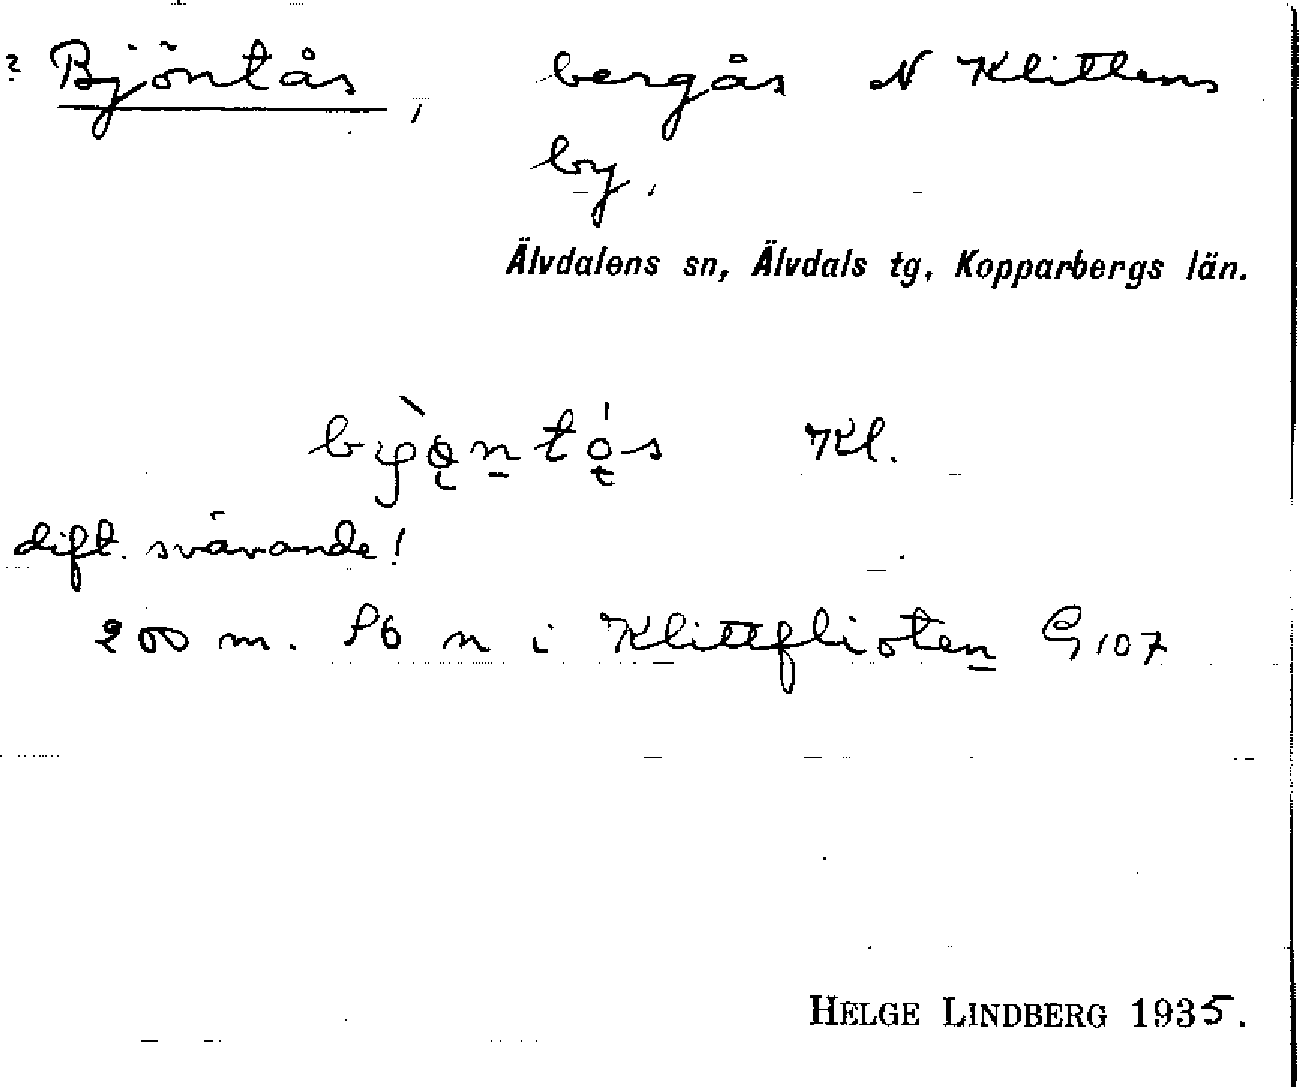 ? Bjöntås, bergås N Klittens
by.
Älvdalens sn, Älvdals tg, Kopparbergs län.
Kl.
dift. svävande!
200 m. n i Klittflioten G 107
HELGE LINDBERG 1935.